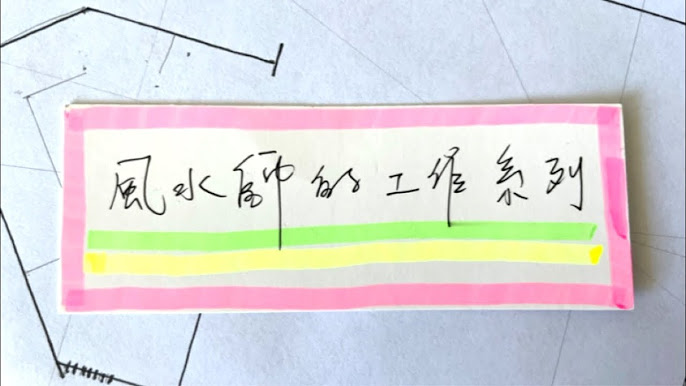 風水師的工作系列